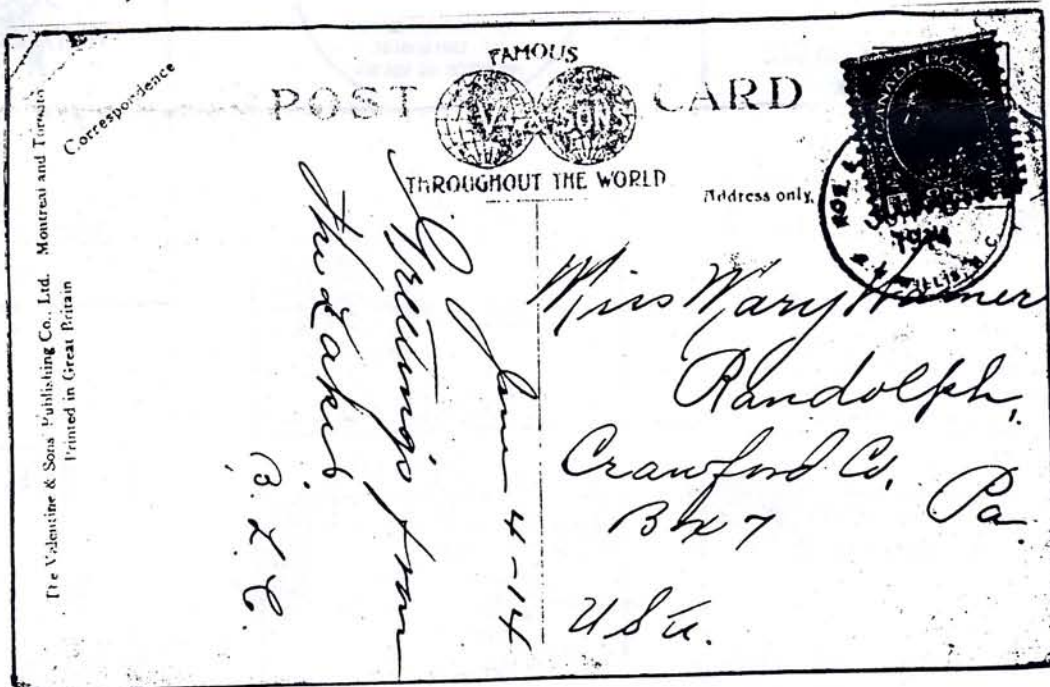 Correspondence
The Valentine & Sons Publishing Co., Ltd. Montreal and Toronto
Printed in Great Britain
FAMOUS
POST CARD
V. & SONS
THROUGHOUT THE WORLD
Address only.
CANADA POSTAGE
1914
June 4-14
Greetings from
the Lakes
B. L. C.
Miss Mary Warner
Randolph,
Crawford Co,
Pa.
Box 7
USA.